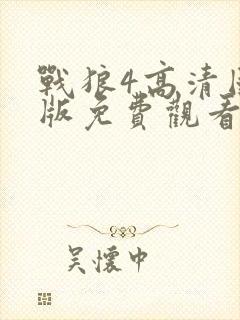 戰狼4高清
版免費觀看
吳懷中